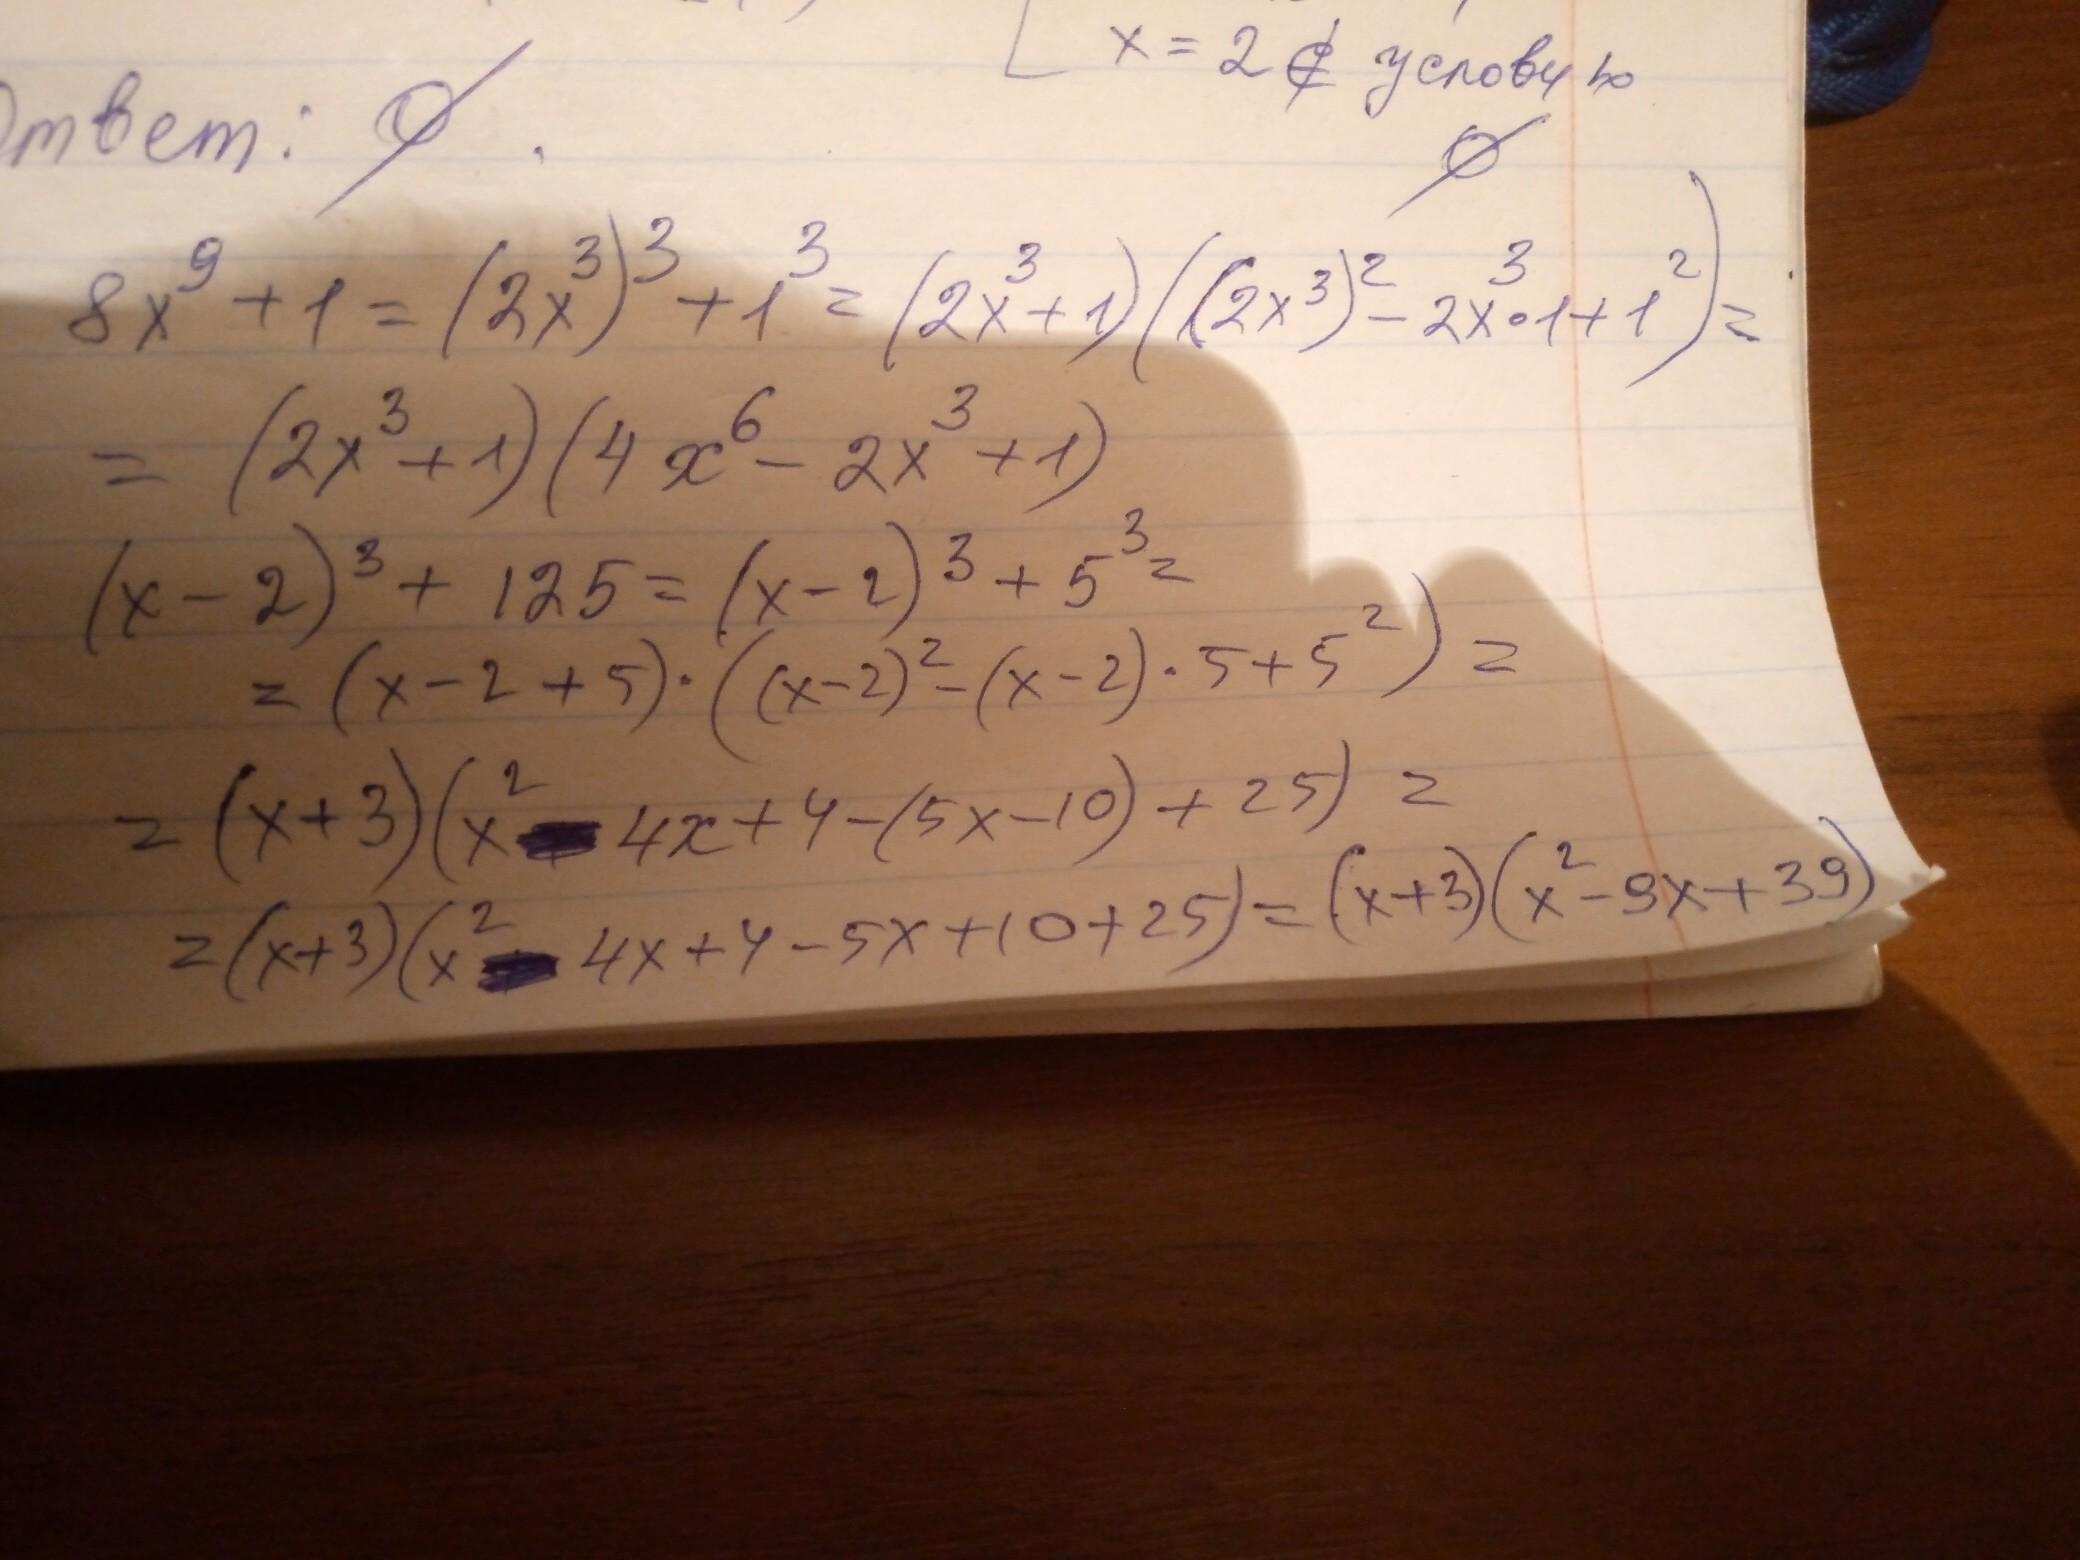 x = 2 ∉ условию
Ответ: ∅.
∅
8x⁹ + 1 = (2x³)³ + 1³ = (2x³ + 1)((2x³)² - 2x³ • 1 + 1²) =
= (2x³ + 1)(4x⁶ - 2x³ + 1)
(x - 2)³ + 125 = (x - 2)³ + 5³ =
= (x - 2 + 5) · ((x - 2)² - (x - 2) · 5 + 5²) =
= (x + 3)(x² - 4x + 4 - (5x - 10) + 25) =
= (x + 3)(x² - 4x + 4 - 5x + 10 + 25) = (x + 3)(x² - 9x + 39)